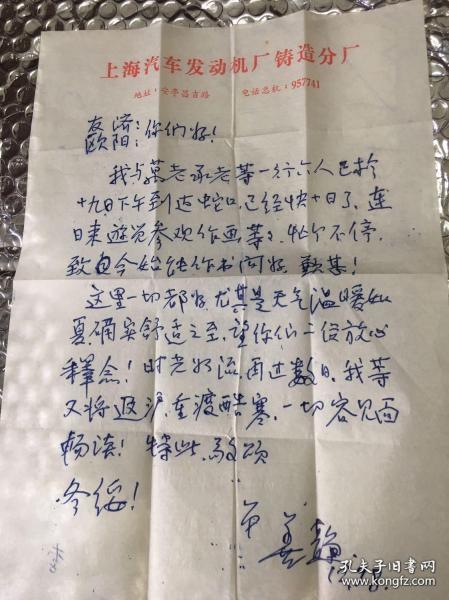 上海汽车发动机厂铸造分厂
地址:安亭昌吉路 电话总机:957741
友济
欧阳:你们好!
我与慕老承老等一行六人已於
十九日下午到达蛇口,已经快十日了,连
日来游览参观作画等々,忙个不停,
致自今始能作书问好,歉甚!
这里一切都好,尤其是天气温暖如
夏,确实舒适之至,望你们二位放心
释念!时光如流,再过数日,我等
又将返沪,重渡酷寒,一切容见面
畅谈!特此,敬颂
冬绥!
弟
孔夫子旧书网